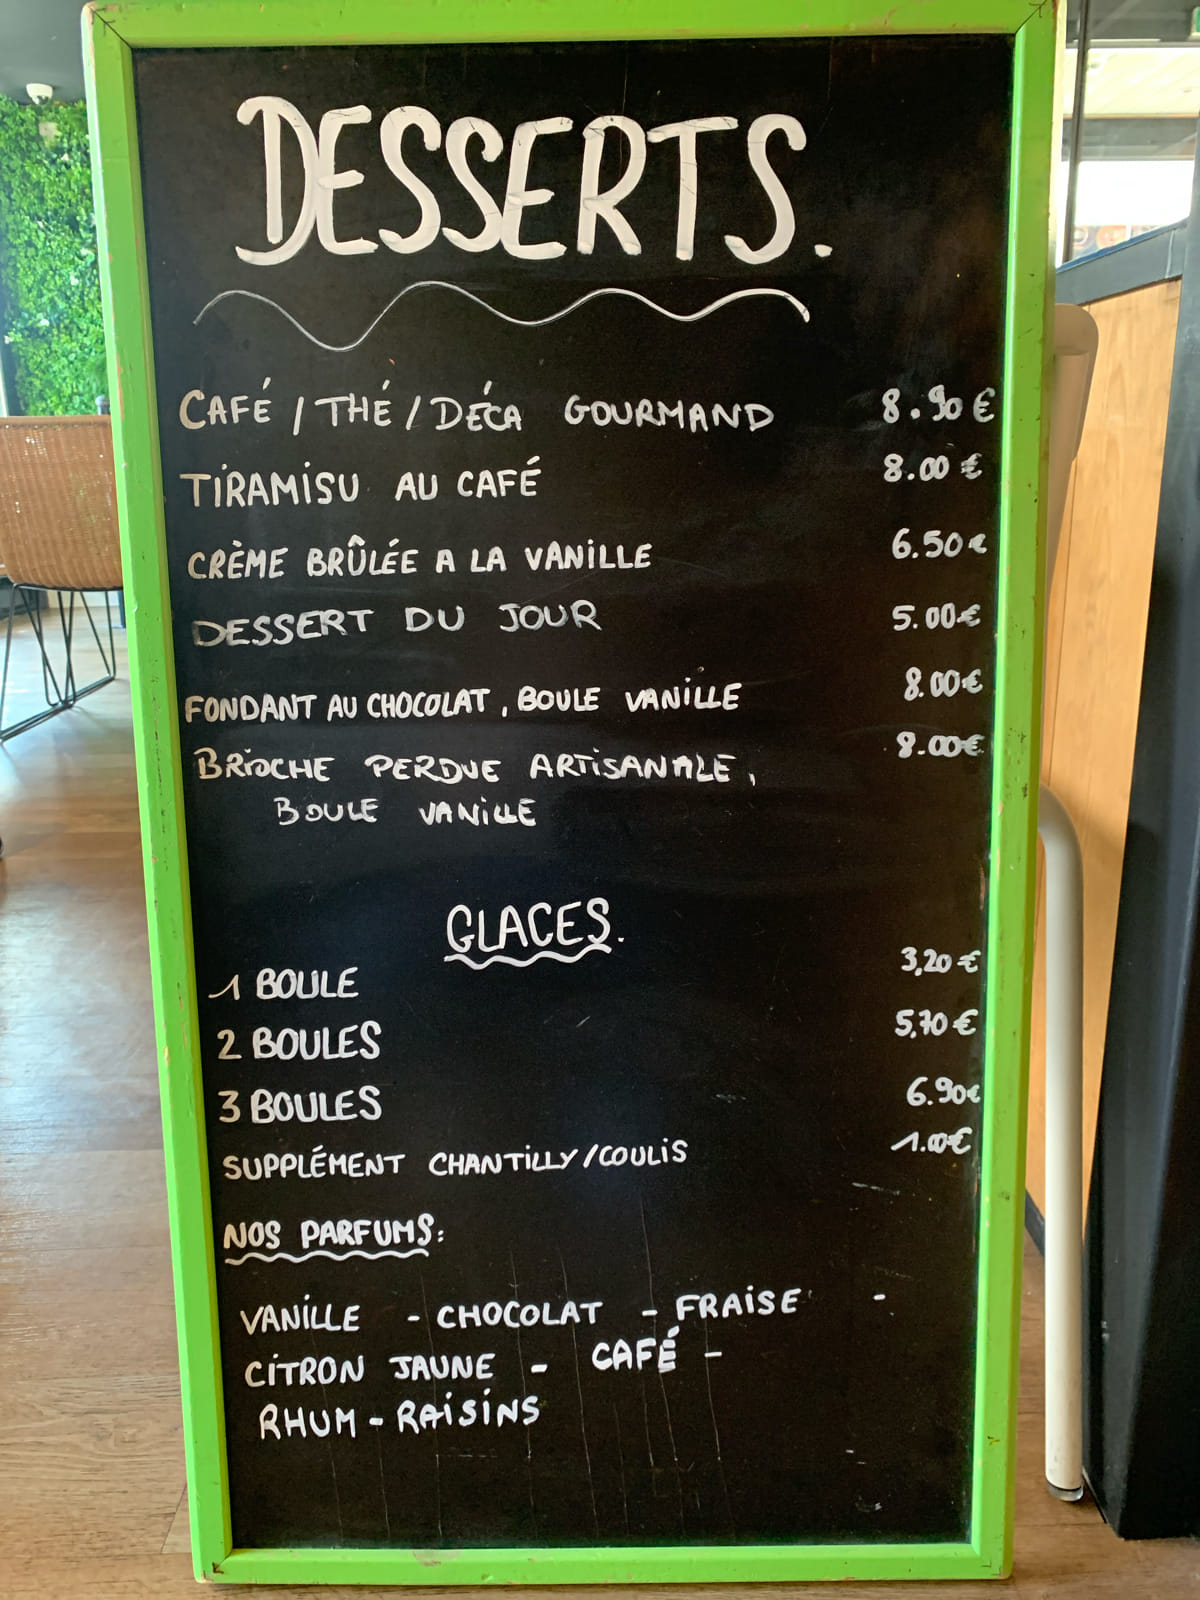 DESSERTS.
CAFÉ / THÉ / DÉCA GOURMAND 8.90 €
TIRAMISU AU CAFÉ 8.00 €
CRÈME BRÛLÉE A LA VANILLE 6.50 €
DESSERT DU JOUR 5.00 €
FONDANT AU CHOCOLAT, BOULE VANILLE 8.00 €
BRIOCHE PERDUE ARTISANALE, 8.00 €
BOULE VANILLE
GLACES.
1 BOULE 3,20 €
2 BOULES 5,70 €
3 BOULES 6.90 €
SUPPLÉMENT CHANTILLY / COULIS 1.00 €
NOS PARFUMS:
VANILLE - CHOCOLAT - FRAISE -
CITRON JAUNE - CAFÉ -
RHUM - RAISINS